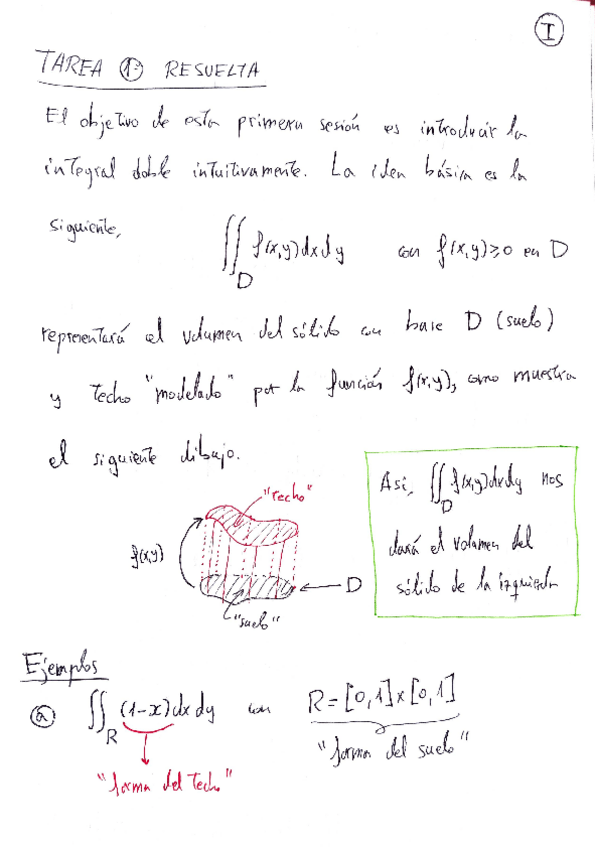 I
TAREA 1 RESUELTA
El objetivo de esta primera sesión es introducir la
integral doble intuitivamente. La idea básica es la
siguiente,
∬_D f(x,y)dxdy con f(x,y)≥0 en D
representará el volumen del sólido con base D (suelo)
y techo "modelado" por la función f(x,y), como muestra
el siguiente dibujo.
"techo"
f(x,y)
D
"suelo"
Así, ∬_D f(x,y)dxdy nos
dará el volumen del
sólido de la izquierda
Ejemplos
a ∬_R (1-x)dxdy con R=[0,1]x[0,1]
"forma del techo"
"forma del suelo"